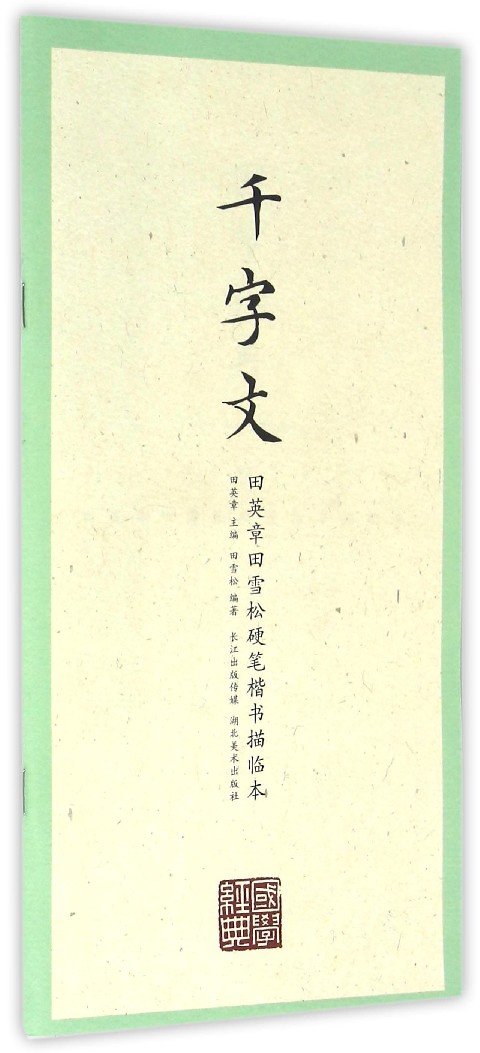 千字文
田英章田雪松硬笔楷书描临本
田英章 主编 田雪松 编著 长江出版传媒 湖北美术出版社
國學
經典